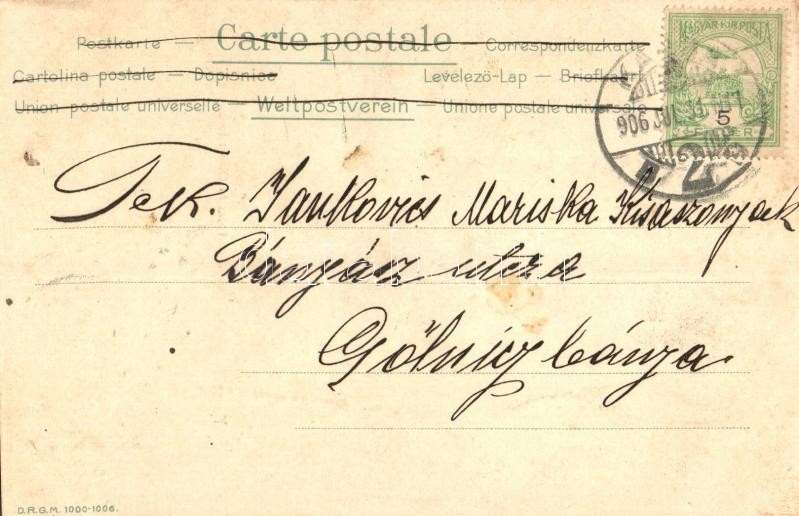 Postkarte — Carte postale — Correspondenzkarte
Cartolina postale — Dopisnice Levelező-Lap — Briefkaart
Union postale universelle — Weltpostverein — Unione postale universale
MAGYAR KIR. POSTA
5
FILLÉR
906
Tek. Jankovics Mariska Kisaszonynak
Bányász utcza
Gölniczbánya.
D.R.G.M. 1000-1006.